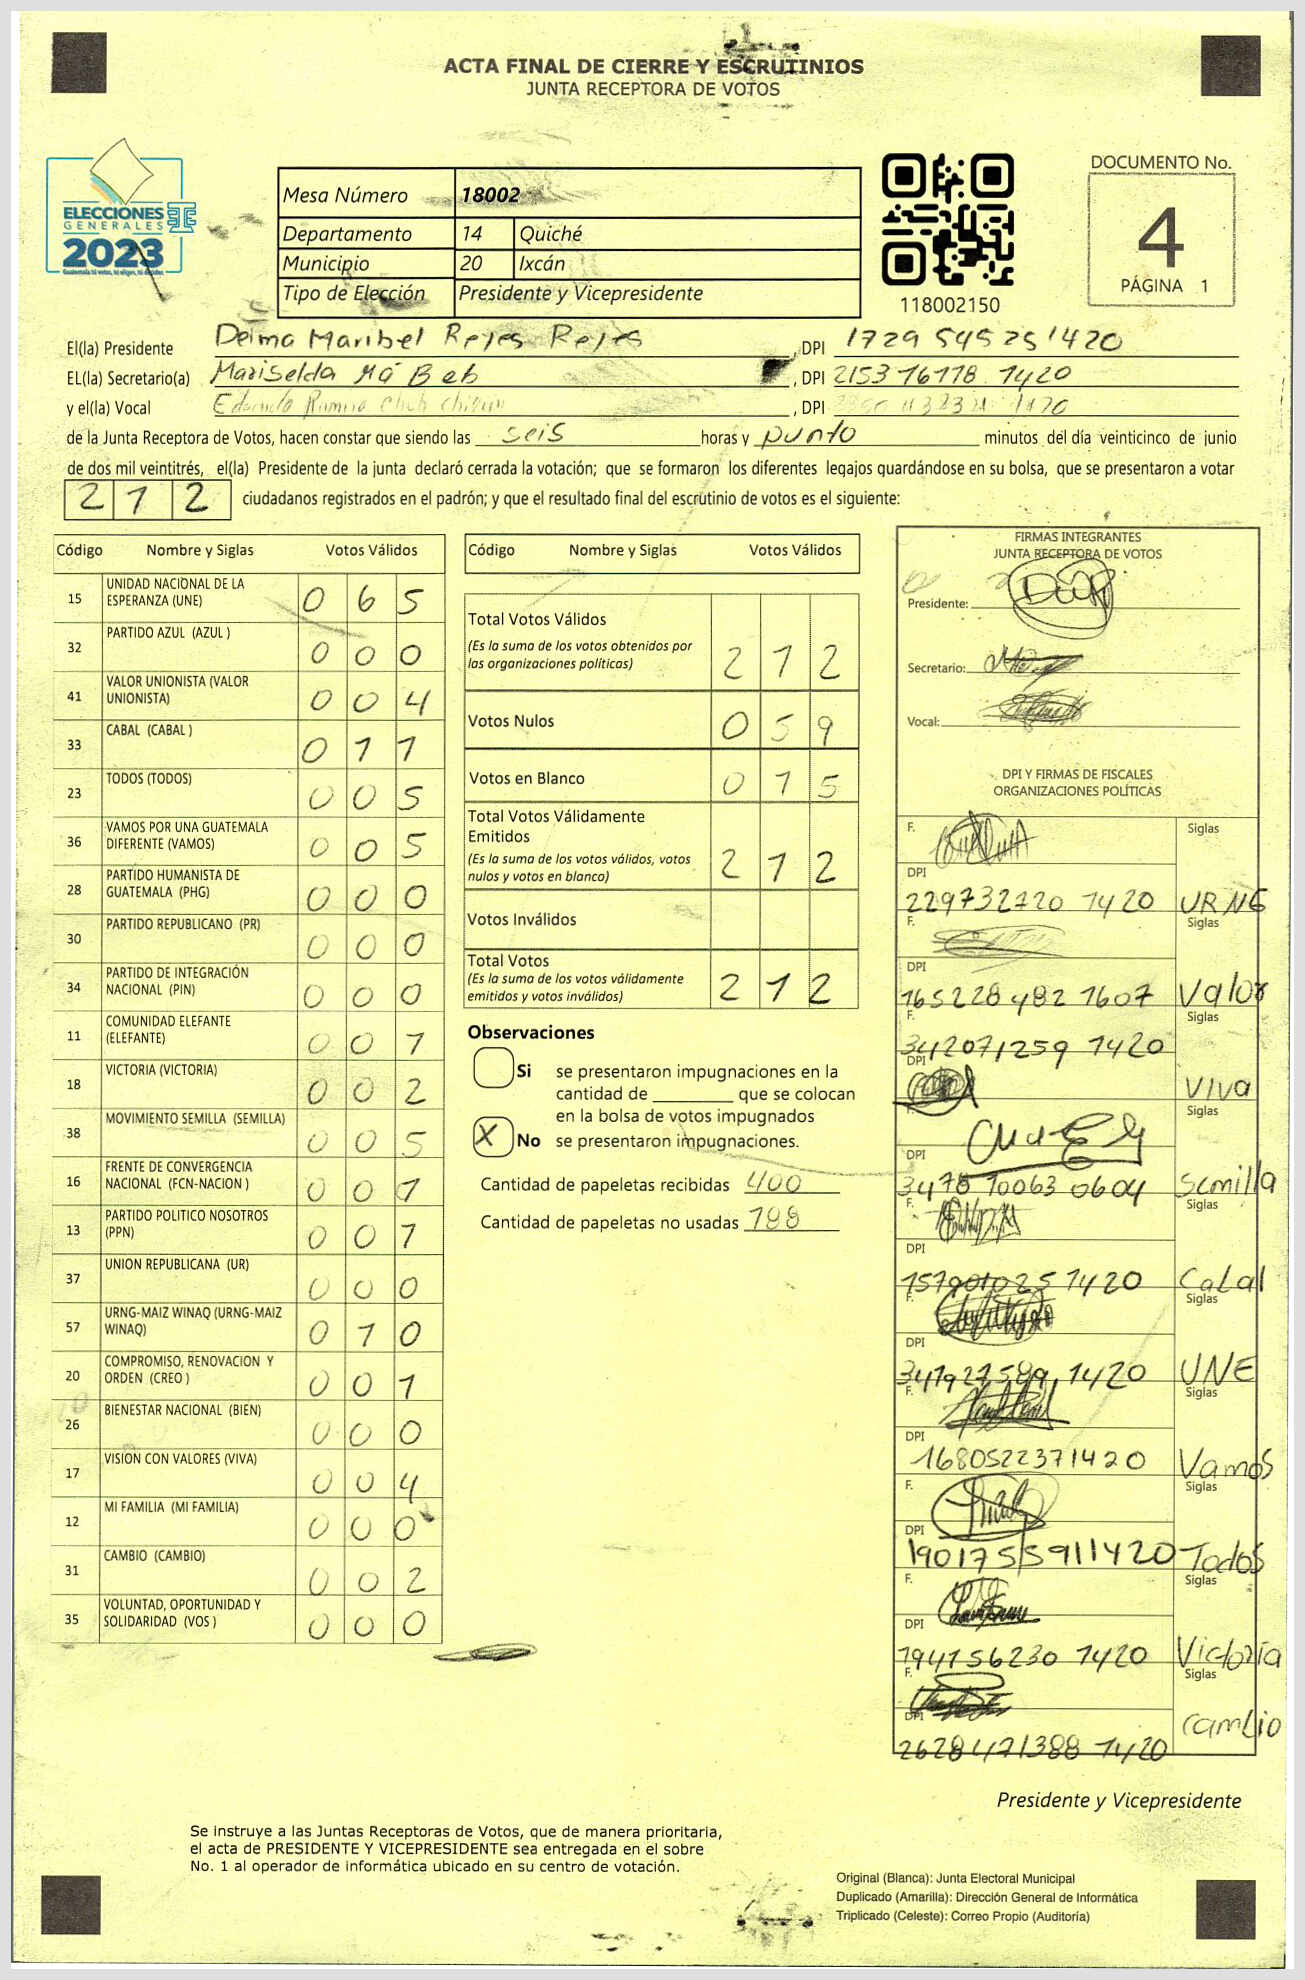 ACTA FINAL DE CIERRE Y ESCRUTINIOS
JUNTA RECEPTORA DE VOTOS
ELECCIONES
GENERALES
2023
Guatemala tú votas, tú eliges, tú decides
Mesa Número 18002
Departamento 14 Quiché
Municipio 20 Ixcán
Tipo de Elección Presidente y Vicepresidente
118002150
DOCUMENTO No.
4
PÁGINA 1
El(la) Presidente Delma Maribel Reyes Reyes, DPI 1729 54525 1420
EL(la) Secretario(a) Mariselda Má Beb, DPI 2153 16118 1420
y el(la) Vocal, DPI
de la Junta Receptora de Votos, hacen constar que siendo las seis horas y punto minutos del día veinticinco de junio
de dos mil veintitrés, el(la) Presidente de la junta declaró cerrada la votación; que se formaron los diferentes legajos guardándose en su bolsa, que se presentaron a votar
212 ciudadanos registrados en el padrón; y que el resultado final del escrutinio de votos es el siguiente:
Código Nombre y Siglas Votos Válidos
15 UNIDAD NACIONAL DE LA ESPERANZA (UNE) 0 6 5
32 PARTIDO AZUL (AZUL ) 0 0 0
41 VALOR UNIONISTA (VALOR UNIONISTA) 0 0 4
33 CABAL (CABAL ) 0 1 1
23 TODOS (TODOS) 0 0 5
36 VAMOS POR UNA GUATEMALA DIFERENTE (VAMOS) 0 0 5
28 PARTIDO HUMANISTA DE GUATEMALA (PHG) 0 0 0
30 PARTIDO REPUBLICANO (PR) 0 0 0
34 PARTIDO DE INTEGRACIÓN NACIONAL (PIN) 0 0 0
11 COMUNIDAD ELEFANTE (ELEFANTE) 0 0 1
18 VICTORIA (VICTORIA) 0 0 2
38 MOVIMIENTO SEMILLA (SEMILLA) 0 0 5
16 FRENTE DE CONVERGENCIA NACIONAL (FCN-NACION ) 0 0 1
13 PARTIDO POLITICO NOSOTROS (PPN) 0 0 1
37 UNION REPUBLICANA (UR) 0 0 0
57 URNG-MAIZ WINAQ (URNG-MAIZ WINAQ) 0 1 0
20 COMPROMISO, RENOVACION Y ORDEN (CREO ) 0 0 1
26 BIENESTAR NACIONAL (BIEN) 0 0 0
17 VISION CON VALORES (VIVA) 0 0 4
12 MI FAMILIA (MI FAMILIA) 0 0 0
31 CAMBIO (CAMBIO) 0 0 2
35 VOLUNTAD, OPORTUNIDAD Y SOLIDARIDAD (VOS ) 0 0 0
Código Nombre y Siglas Votos Válidos
Total Votos Válidos 2 1 2
(Es la suma de los votos obtenidos por
las organizaciones políticas)
Votos Nulos 0 5 9
Votos en Blanco 0 1 5
Total Votos Válidamente
Emitidos 2 1 2
(Es la suma de los votos válidos, votos
nulos y votos en blanco)
Votos Inválidos
Total Votos 2 1 2
(Es la suma de los votos válidamente
emitidos y votos inválidos)
Observaciones
Si se presentaron impugnaciones en la
cantidad de ________ que se colocan
en la bolsa de votos impugnados
X No se presentaron impugnaciones.
Cantidad de papeletas recibidas 400
Cantidad de papeletas no usadas 188
FIRMAS INTEGRANTES
JUNTA RECEPTORA DE VOTOS
Presidente:
Secretario:
Vocal:
DPI Y FIRMAS DE FISCALES
ORGANIZACIONES POLÍTICAS
F. Siglas
DPI
229732720 1420 URNG
F. Siglas
DPI
165228482 1607 Valor
F. Siglas
342071259 1420
DPI
Viva
F. Siglas
DPI
3478 10063 0604 Semilla
F. Siglas
DPI
157901025 1420 Cabal
F. Siglas
DPI
341927589 1420 UNE
F. Siglas
DPI
1680522371420 Vamos
F. Siglas
DPI
1901755911420 Todos
F. Siglas
DPI
194156230 1420 Victoria
F. Siglas
DPI
2628471388 1420 cambio
Presidente y Vicepresidente
Se instruye a las Juntas Receptoras de Votos, que de manera prioritaria,
el acta de PRESIDENTE Y VICEPRESIDENTE sea entregada en el sobre
No. 1 al operador de informática ubicado en su centro de votación.
Original (Blanca): Junta Electoral Municipal
Duplicado (Amarilla): Dirección General de Informática
Triplicado (Celeste): Correo Propio (Auditoría)